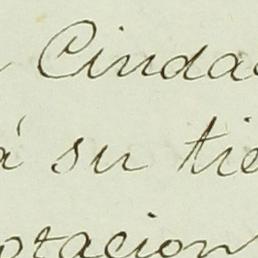 Cindad
á su tie
ptacion